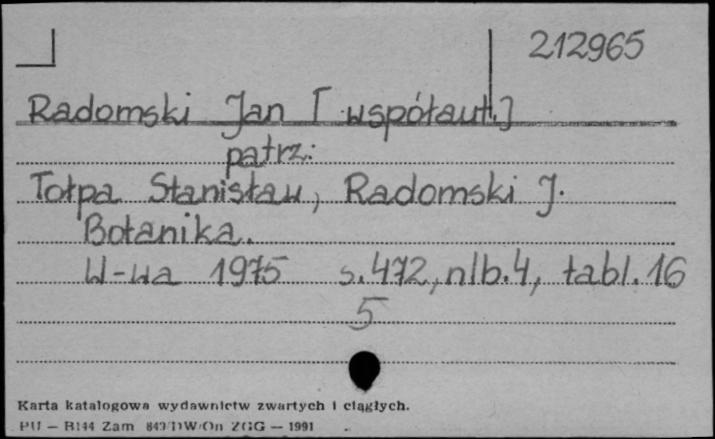 212965
Radomski Jan [współaut.]
patrz:
Tołpa Stanisław, Radomski J.
Botanika.
W-wa 1975 s.472, nlb.4, tabl.16
5
Karta katalogowa wydawnictw zwartych i ciągłych.
PU — B144 Zam 849/DW/On ZGG — 1991